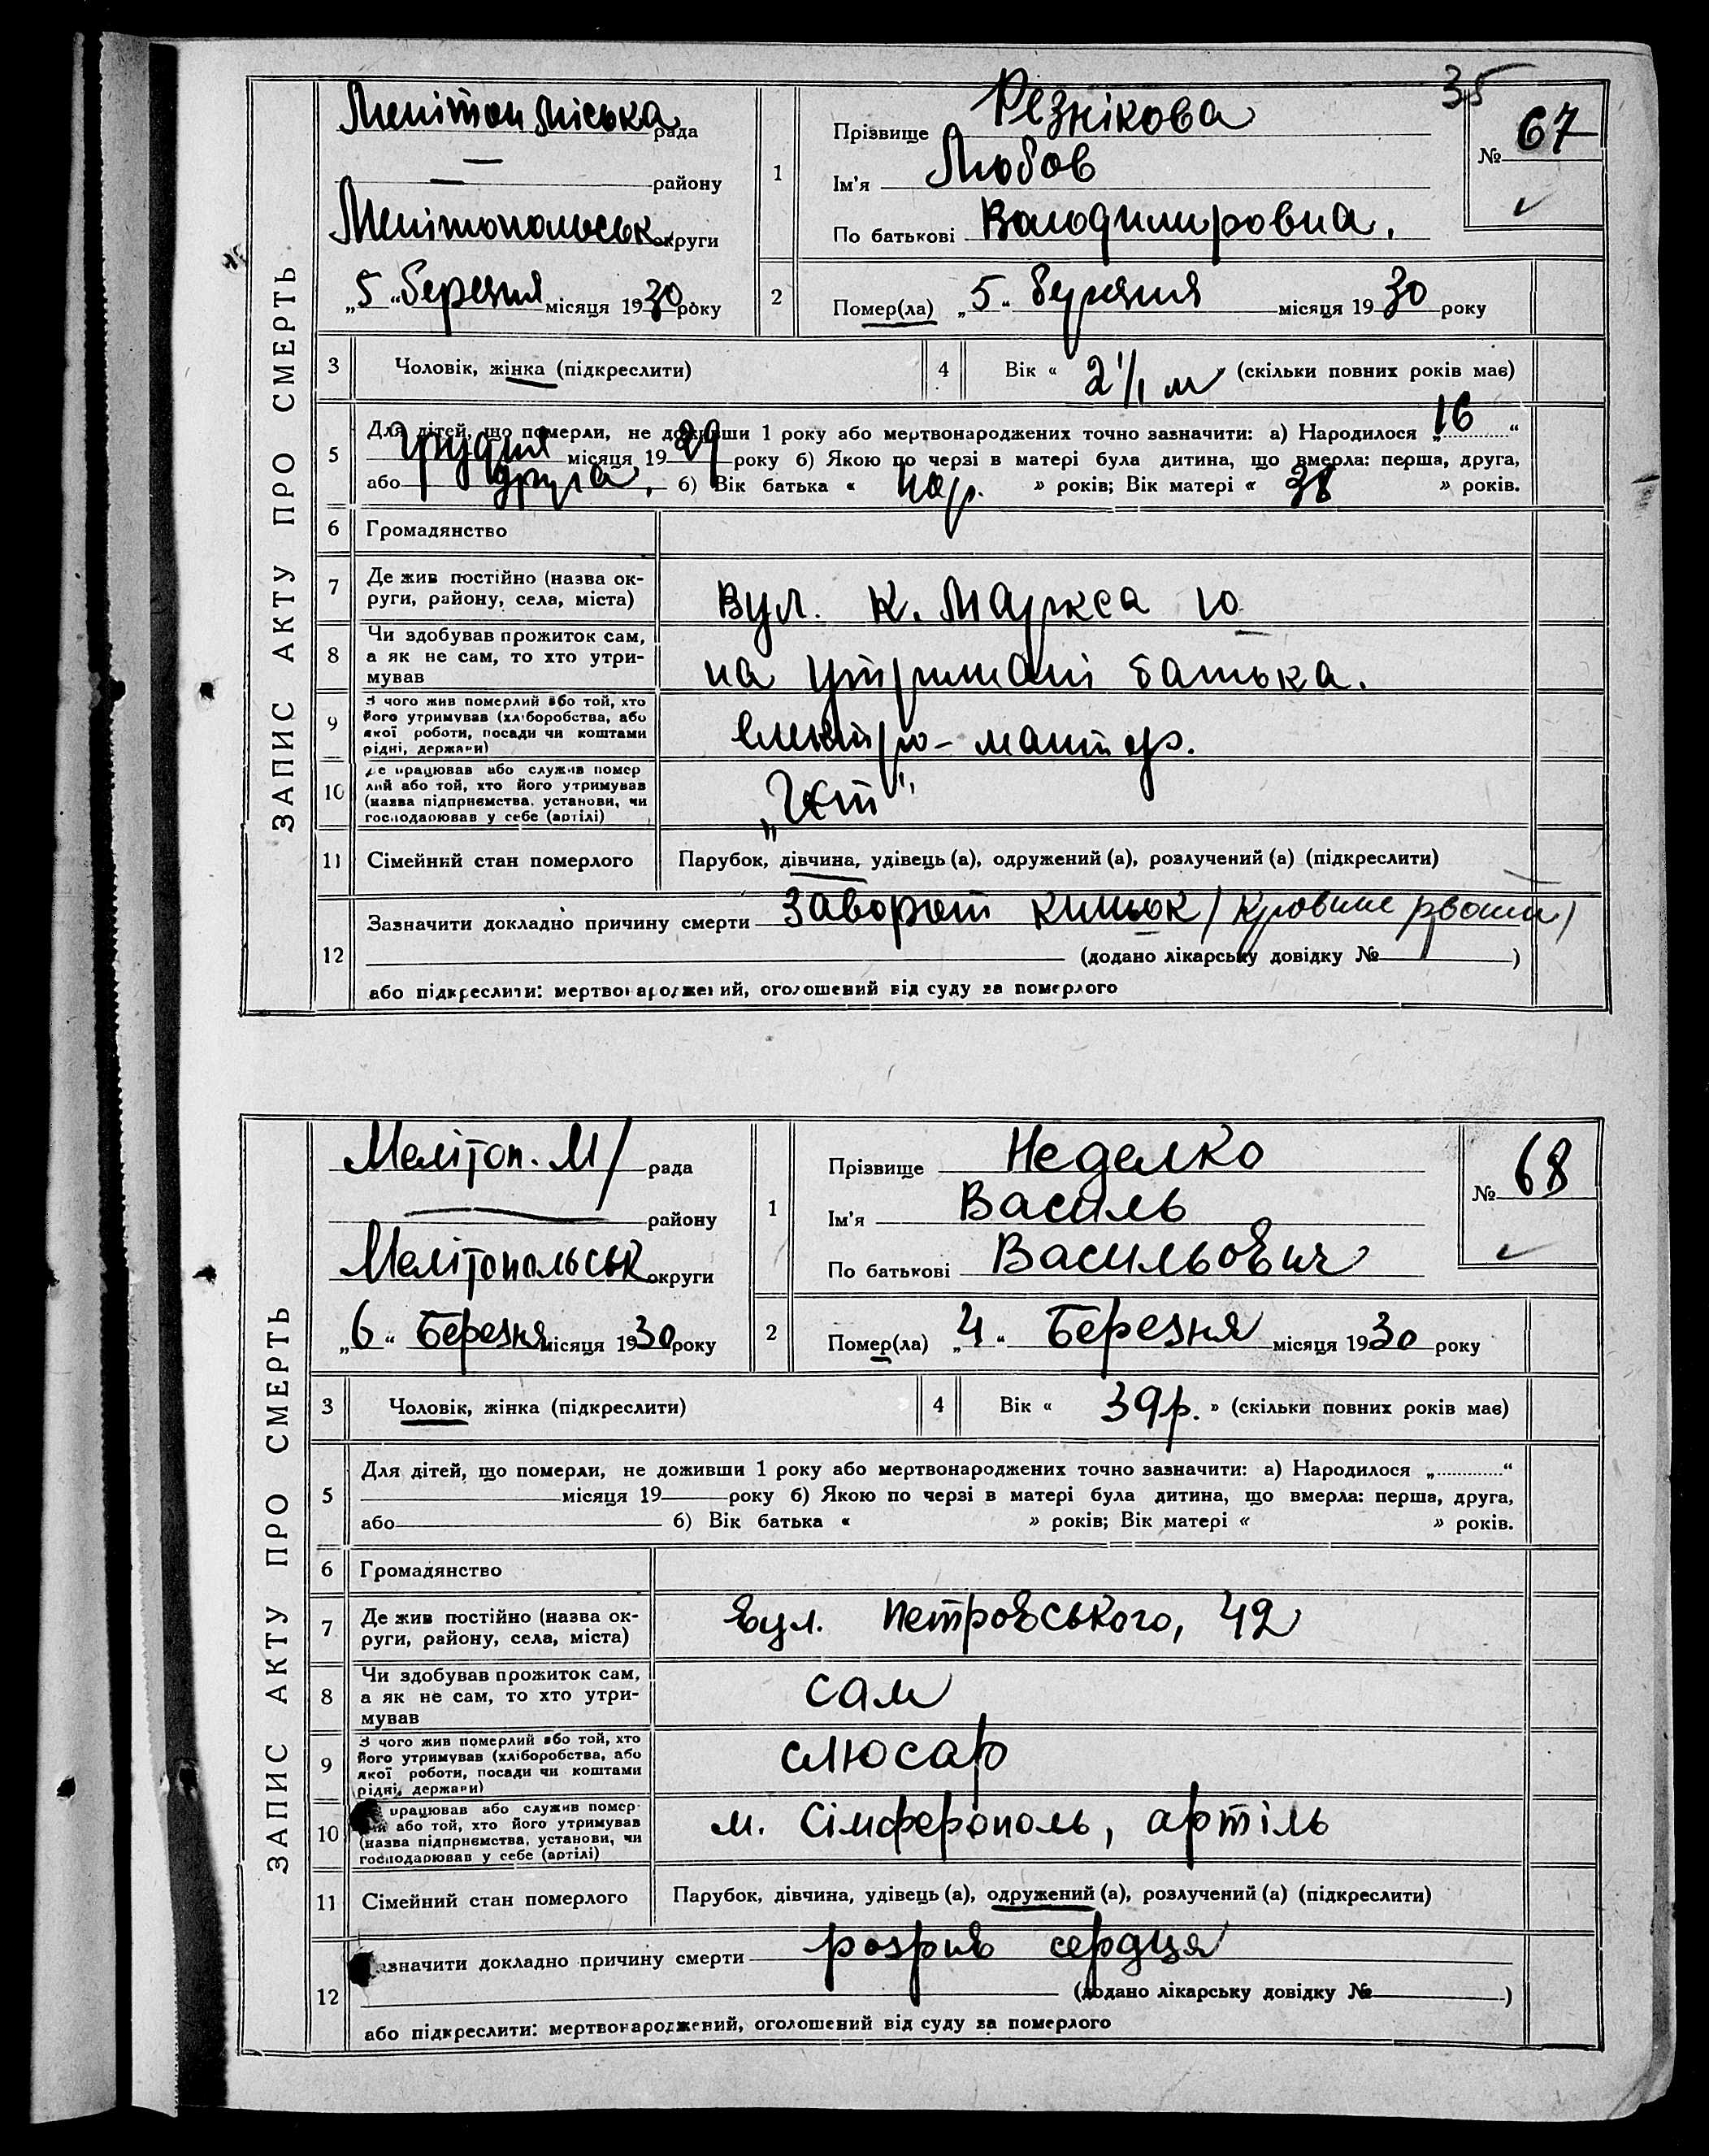 35
ЗАПИС АКТУ ПРО СМЕРТЬ
Меліто міська рада
— району
Мелітопольськ округи
„5“ березня місяця 1930 року
1
Прізвище Резнікова
Ім'я Любов
По батькові Володимировна.
№ 67
2
Помер(ла) „5“ березня місяця 1930 року
3 Чоловік, жінка (підкреслити)
4 Вік « 2 1/1 м » (скільки повних років має)
5
Для дітей, що померли, не доживши 1 року або мертвонароджених точно зазначити: а) Народилося „16“
грудня місяця 1929 року б) Якою по черзі в матері була дитина, що вмерла: перша, друга,
або друга, б) Вік батька « 40 р. » років; Вік матері « 38 » років.
6 Громадянство
7 Де жив постійно (назва округи, району, села, міста)
вул. К. Маркса 10
8 Чи здобував прожиток сам, а як не сам, то хто утримував
на утримані батька.
9 З чого жив померлий або той, хто його утримував (хліборобства, або якої роботи, посади чи коштами рідні, держави)
електро-монтер.
10 Де працював або служив померлий або той, хто його утримував (назва підприємства, установи, чи господарював у себе (артілі)
11 Сімейний стан померлого
Парубок, дівчина, удівець (а), одружений (а), розлучений (а) (підкреслити)
12
Зазначити докладно причину смерти Заворот кишок /кровин рвоти/
(додано лікарську довідку № )
або підкреслити: мертвонароджений, оголошений від суду за померлого
ЗАПИС АКТУ ПРО СМЕРТЬ
Мелітоп. М/ рада
— району
Мелітопольськ округи
„6“ Березня місяця 1930 року
1
Прізвище Неделко
Ім'я Василь
По батькові Васильович
№ 68
2
Помер(ла) „4“ Березня місяця 1930 року
3 Чоловік, жінка (підкреслити)
4 Вік « 39 р. » (скільки повних років має)
5
Для дітей, що померли, не доживши 1 року або мертвонароджених точно зазначити: а) Народилося „ “
місяця 19 року б) Якою по черзі в матері була дитина, що вмерла: перша, друга,
або б) Вік батька « » років; Вік матері « » років.
6 Громадянство
7 Де жив постійно (назва округи, району, села, міста)
вул. Петровського, 42
8 Чи здобував прожиток сам, а як не сам, то хто утримував
сам
9 З чого жив померлий або той, хто його утримував (хліборобства, або якої роботи, посади чи коштами рідні, держави)
слюсар
10 працював або служив помер- або той, хто його утримував (назва підприємства, установи, чи господарював у себе (артілі)
м. Сімферополь, артіль
11 Сімейний стан померлого
Парубок, дівчина, удівець (а), одружений (а), розлучений (а) (підкреслити)
12
Зазначити докладно причину смерти розрив сердця
(додано лікарську довідку № )
або підкреслити: мертвонароджений, оголошений від суду за померлого